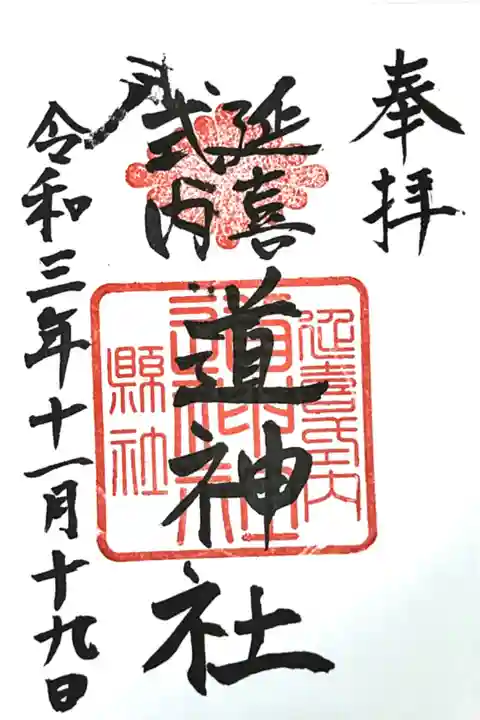 奉拝
延喜
式内
道神社
延喜式内
道神社
縣社
令和三年十一月十九日